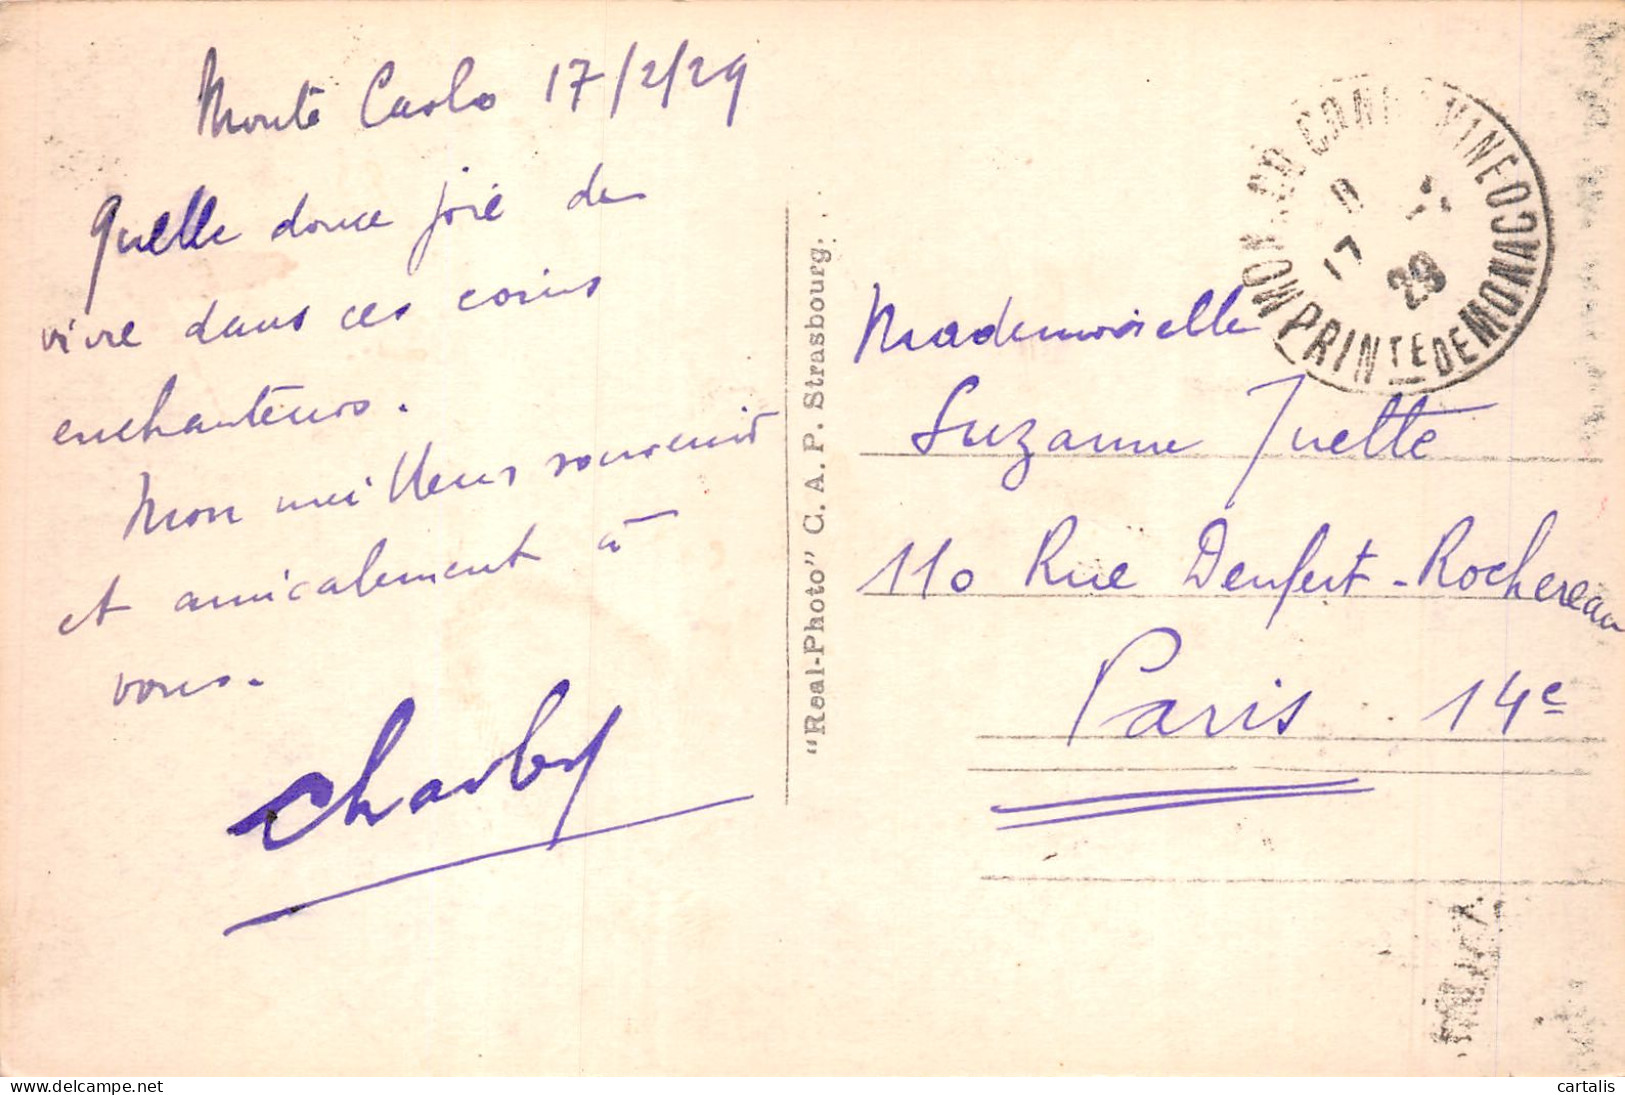 Monte Carlo 17/2/29
Quelle douce joie de
vivre dans ces coins
enchanteurs.
Mon meilleur souvenir
et amicalement à
vous.
Charley
"Real-Photo" C. A. P. Strasbourg.
PRINTE DE MONACO
17 29
Mademoiselle
Suzanne Juette
110 Rue Denfert-Rochereau
Paris 14e
cartalis